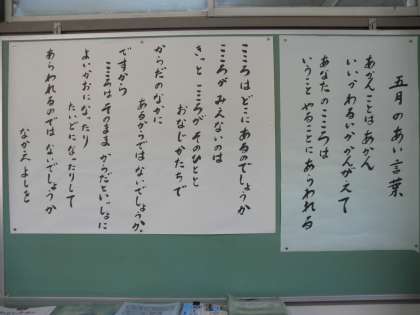 五月のあい言葉
あかんことはあかん
いいかわるいかかんがえて
あなたのこころは
いうこと やることに あらわれる
こころは どこに あるのでしょうか
こころが みえないのは
きっと こころが そのひとと
おなじ かたちで
からだのなかに
あるからでは ないでしょうか
ですから
こころは そのまま からだといっしょに
よいかおになったり
たいどに なったりして
あらわれるのでは ないでしょうか
なかえ よしを